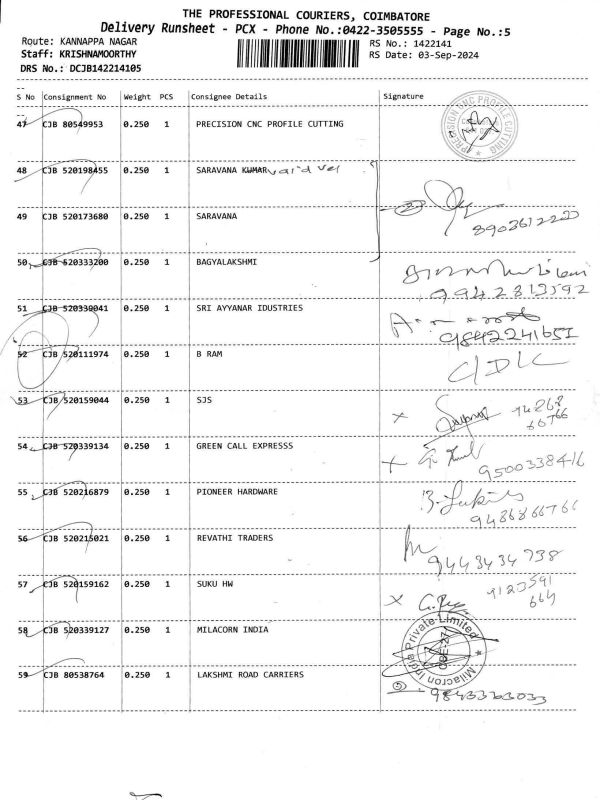 THE PROFESSIONAL COURIERS, COIMBATORE
Delivery Runsheet - PCX - Phone No.:0422-3505555 - Page No.:5
Route: KANNAPPA NAGAR
Staff: KRISHNAMOORTHY
DRS No.: DCJB142214105
RS No.: 1422141
RS Date: 03-Sep-2024
S No Consignment No Weight PCS Consignee Details Signature
47 CJB 80549953 0.250 1 PRECISION CNC PROFILE CUTTING
PRECISION CNC PROFILE CUTTING
48 CJB 520198455 0.250 1 SARAVANA KUMAR
49 CJB 520173680 0.250 1 SARAVANA
50 CJB 520333200 0.250 1 BAGYALAKSHMI
9942813592
51 CJB 520339041 0.250 1 SRI AYYANAR IDUSTRIES
9842241651
52 CJB 520111974 0.250 1 B RAM
C/DLC
53 CJB 520159044 0.250 1 SJS
54 CJB 520339134 0.250 1 GREEN CALL EXPRESSS
9500338416
55 CJB 520216879 0.250 1 PIONEER HARDWARE
9486866766
56 CJB 520215021 0.250 1 REVATHI TRADERS
9443434738
57 CJB 520159162 0.250 1 SUKU HW
9123591
664
58 CJB 520339127 0.250 1 MILACORN INDIA
Milacron India Private Limited
59 CJB 80538764 0.250 1 LAKSHMI ROAD CARRIERS